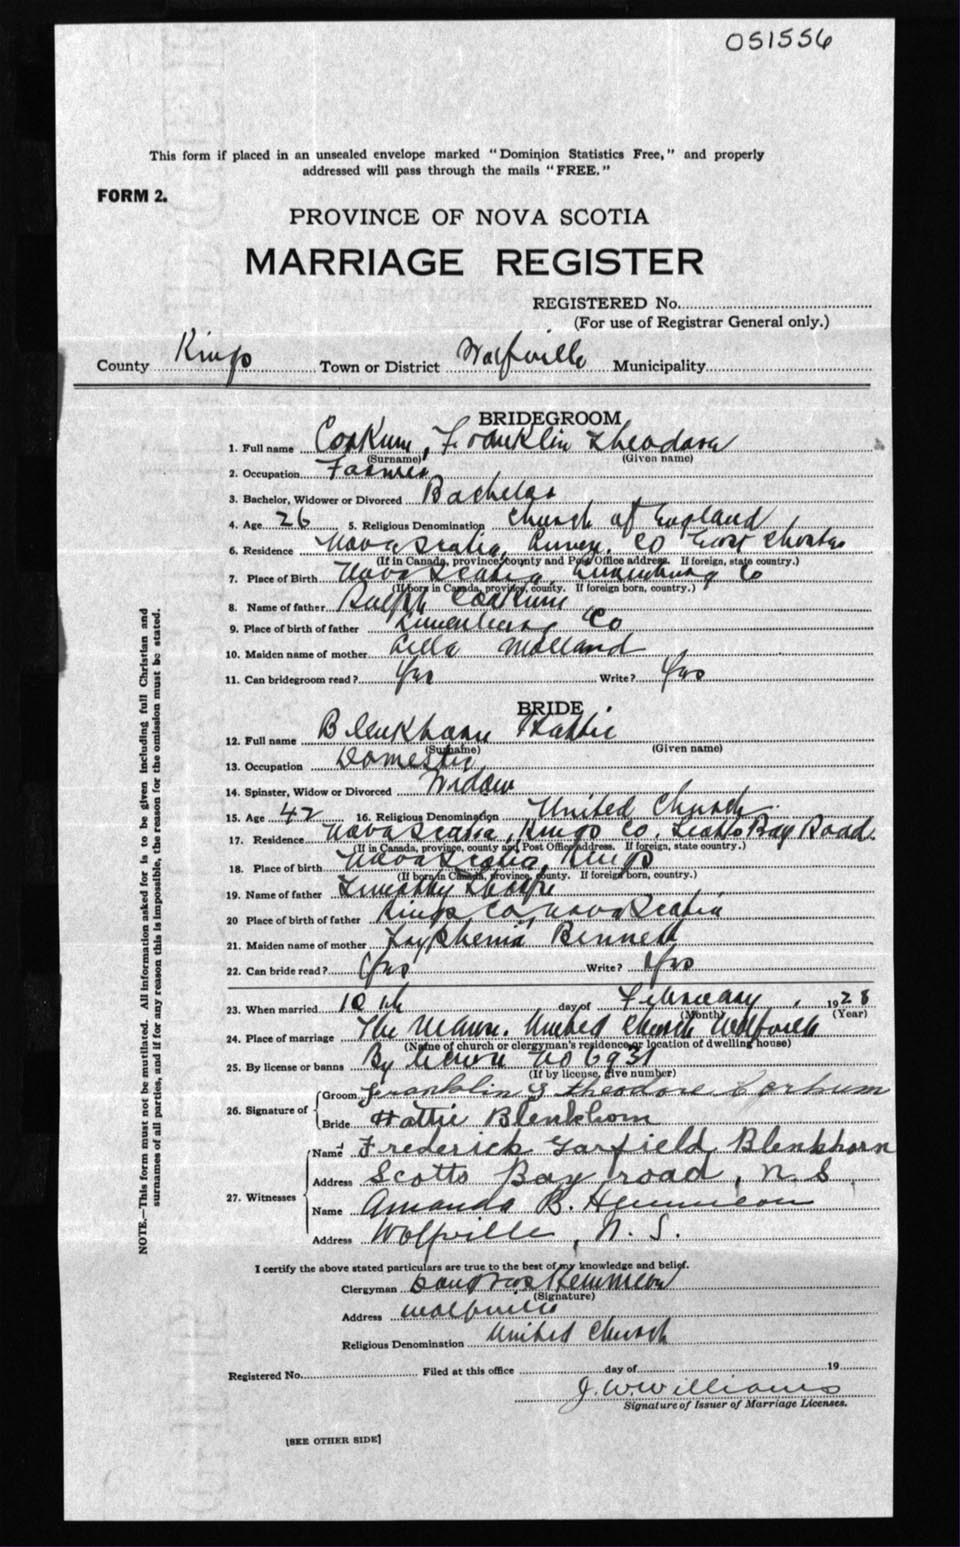 051556
This form if placed in an unsealed envelope marked "Dominion Statistics Free," and properly
addressed will pass through the mails "FREE."
FORM 2.
PROVINCE OF NOVA SCOTIA
MARRIAGE REGISTER
REGISTERED No.
(For use of Registrar General only.)
County Kings Town or District Wolfville Municipality
BRIDEGROOM
1. Full name Corkum, Franklin Theodore
(Surname) (Given name)
2. Occupation Farmer
3. Bachelor, Widower or Divorced Bachelor
4. Age 26 5. Religious Denomination Church of England
6. Residence Nova Scotia, Lunen. Co East Chester
(If in Canada, province, county and Post Office address. If foreign, state country.)
7. Place of Birth Nova Scotia, Lunenburg Co
(If born in Canada, province, county. If foreign born, country.)
8. Name of father Ralph Corkum
9. Place of birth of father Lunenburg Co
10. Maiden name of mother Lella
11. Can bridegroom read? Yes Write? Yes
BRIDE
12. Full name Blenkhorn Hattie
(Surname) (Given name)
13. Occupation Domestic
14. Spinster, Widow or Divorced Widow
15. Age 42 16. Religious Denomination United Church
17. Residence Nova Scotia, Kings Co, Scotts Bay Road.
(If in Canada, province, county and Post Office address. If foreign, state country.)
18. Place of birth Nova Scotia, Kings
(If born in Canada, province, county. If foreign born, country.)
19. Name of father Timothy Thorpe
20 Place of birth of father Kings Co, Nova Scotia
21. Maiden name of mother Bennett
22. Can bride read? Yes Write? Yes
23. When married 10th day of February, 1928
(Month) (Year)
24. Place of marriage The Manse. United Church Wolfville
(Name of church or clergyman's residence or location of dwelling house)
25. By license or banns By License No 6931
(If by license, give number)
26. Signature of Groom Franklin Theodore Corkum
Bride Hattie Blenkhorn
27. Witnesses Name Frederick Garfield Blenkhorn
Address Scotts Bay road, N. S.
Name Amanda B. Hemmeon
Address Wolfville, N. S.
I certify the above stated particulars are true to the best of my knowledge and belief.
Clergyman Hemmeon
(Signature)
Address Wolfville
Religious Denomination United Church
Registered No. Filed at this office day of 19
J. W. Williams
Signature of Issuer of Marriage Licenses.
[SEE OTHER SIDE]
NOTE.—This form must not be mutilated. All information asked for is to be given including full Christian and
surnames of all parties, and if for any reason this is impossible, the reason for the omission must be stated.